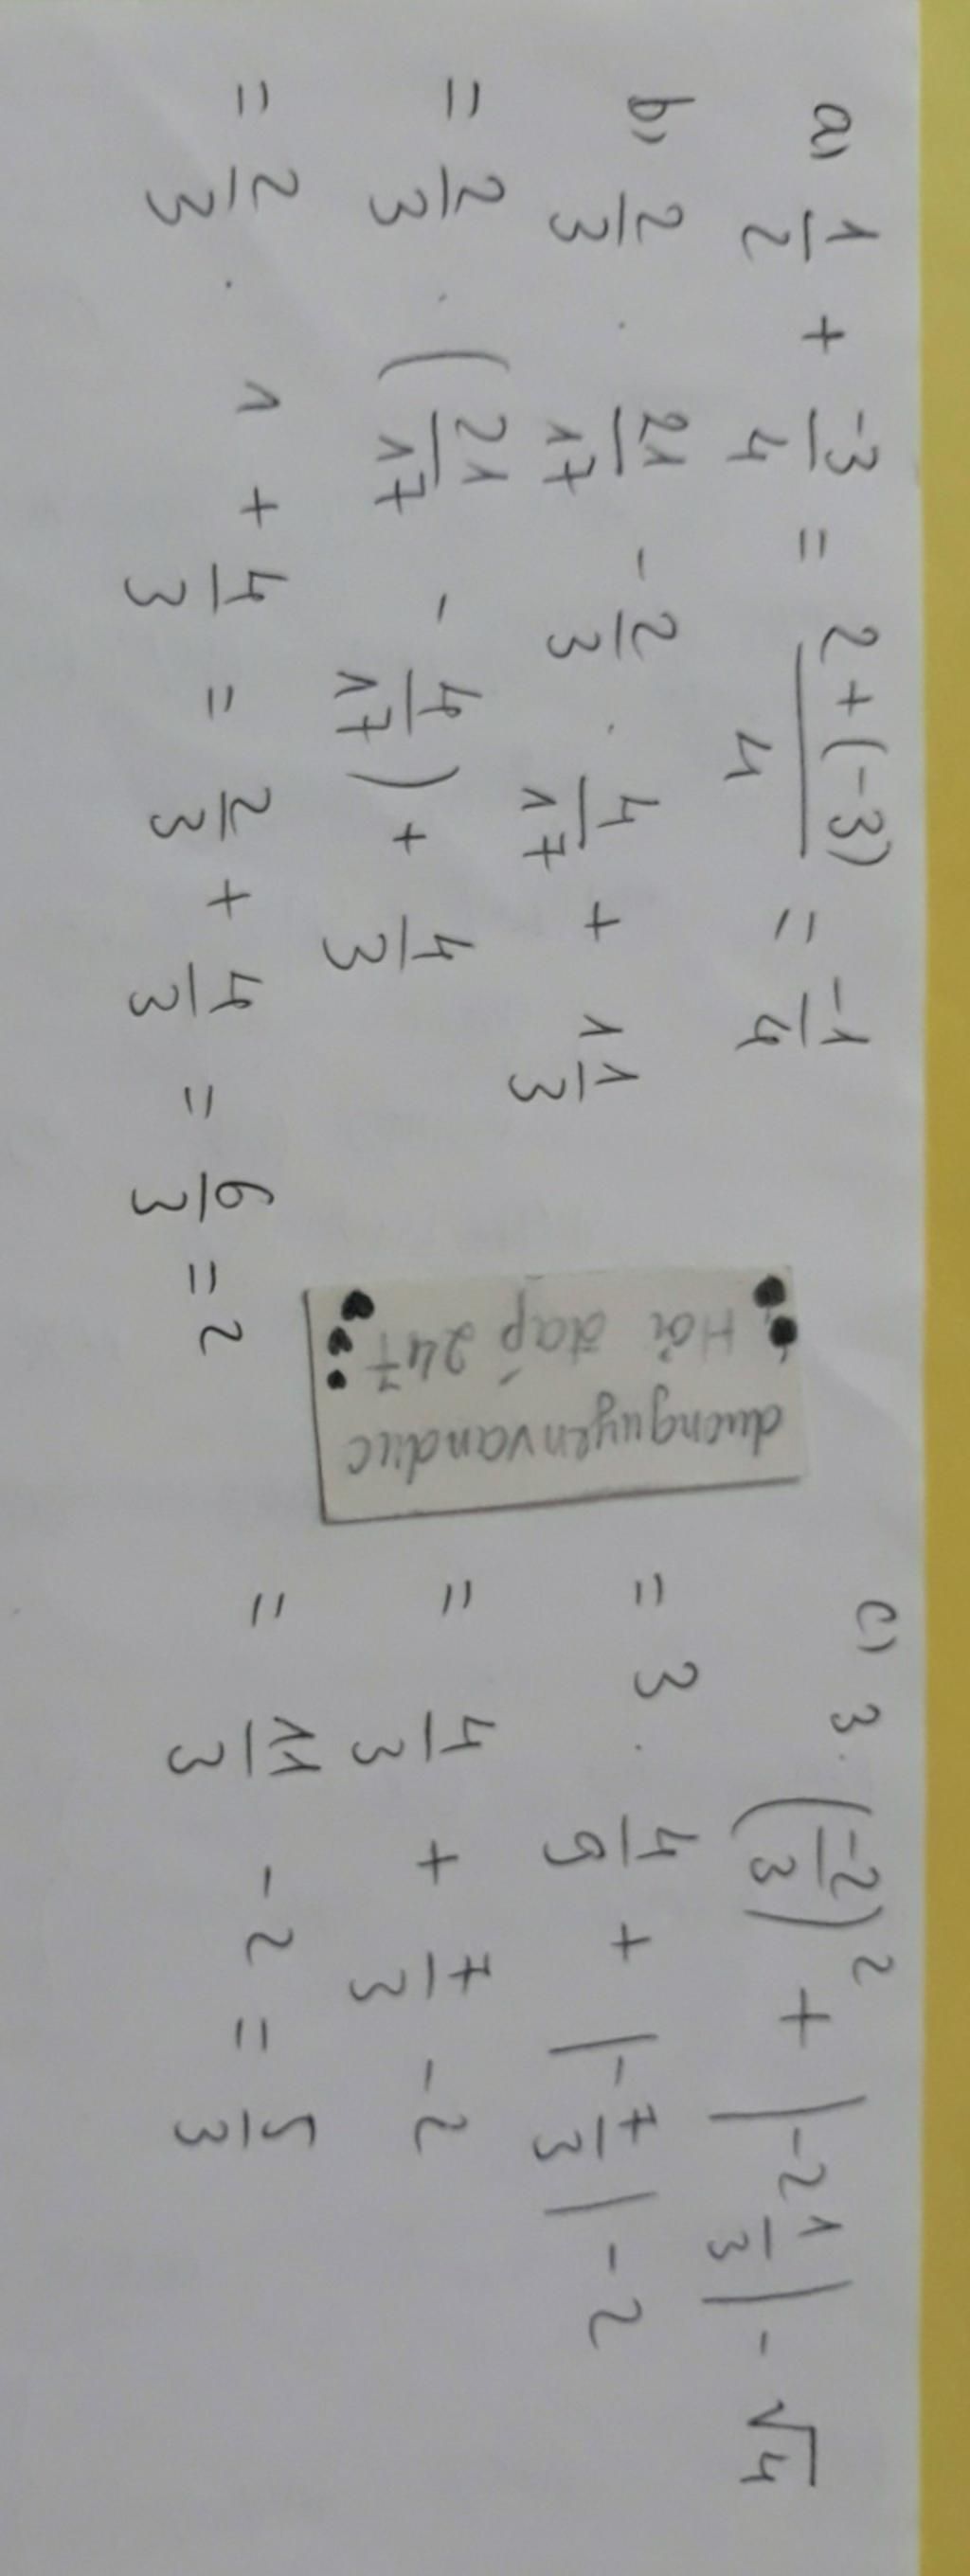 a) 1/2 + -3/4 = 2+(-3)/4 = -1/4
b) 2/3 . 21/17 - 2/3 . 4/17 + 1 1/3
= 2/3 . (21/17 - 4/17) + 4/3
= 2/3 . 1 + 4/3 = 2/3 + 4/3 = 6/3 = 2
duongnguyenvanduc
Hỏi đáp 247
c) 3. (-2/3)² + |-2 1/3| - √4
= 3 . 4/9 + |-7/3| - 2
= 4/3 + 7/3 - 2
= 11/3 - 2 = 5/3